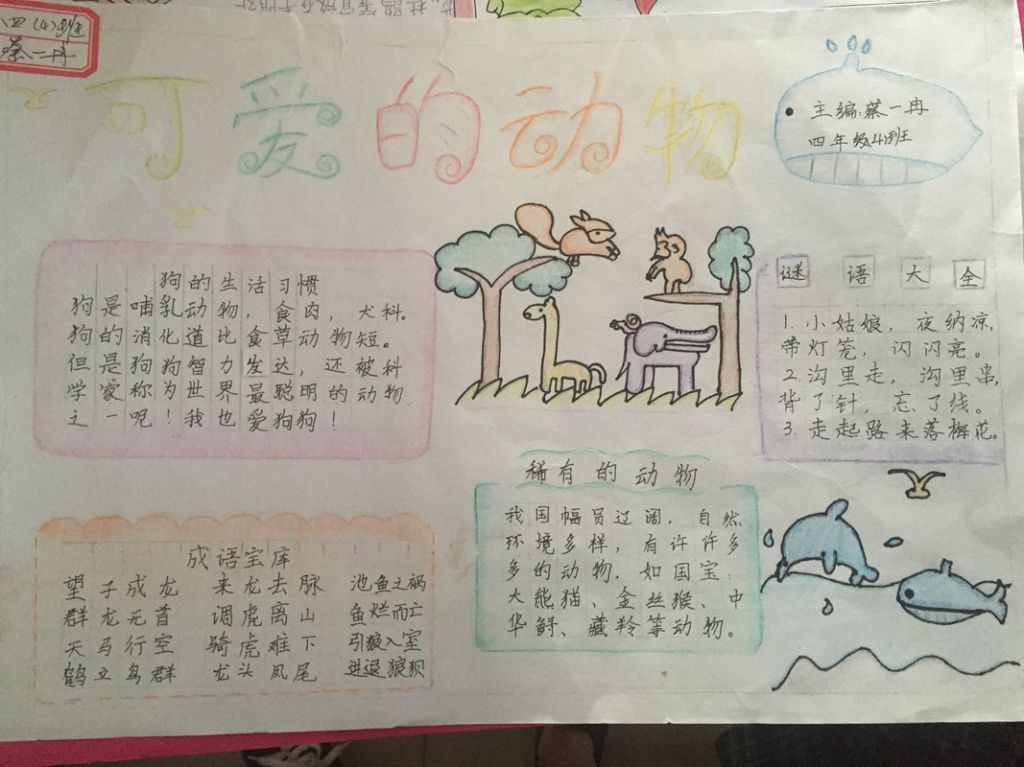 四(4)班
蔡一冉
可爱的动物
主编:蔡一冉
四年级4班
狗的生活习惯
狗是哺乳动物，食肉，犬科。
狗的消化道比食草动物短。
但是狗狗智力发达，还被科
学家称为世界最聪明的动物
之一呢！我也爱狗狗！
谜语大全
1.小姑娘，夜纳凉，
带灯笼，闪闪亮。
2.沟里走，沟里串，
背了针，忘了线。
3.走起路来落梅花。
稀有的动物
我国幅员辽阔，自然
环境多样，有许许多
多的动物，如国宝：
大熊猫、金丝猴、中
华鲟、藏羚等动物。
成语宝库
望子成龙 来龙去脉 池鱼之祸
群龙无首 调虎离山 鱼烂而亡
天马行空 骑虎难下 引狼入室
鹤立鸟群 龙头凤尾 进退狼狈